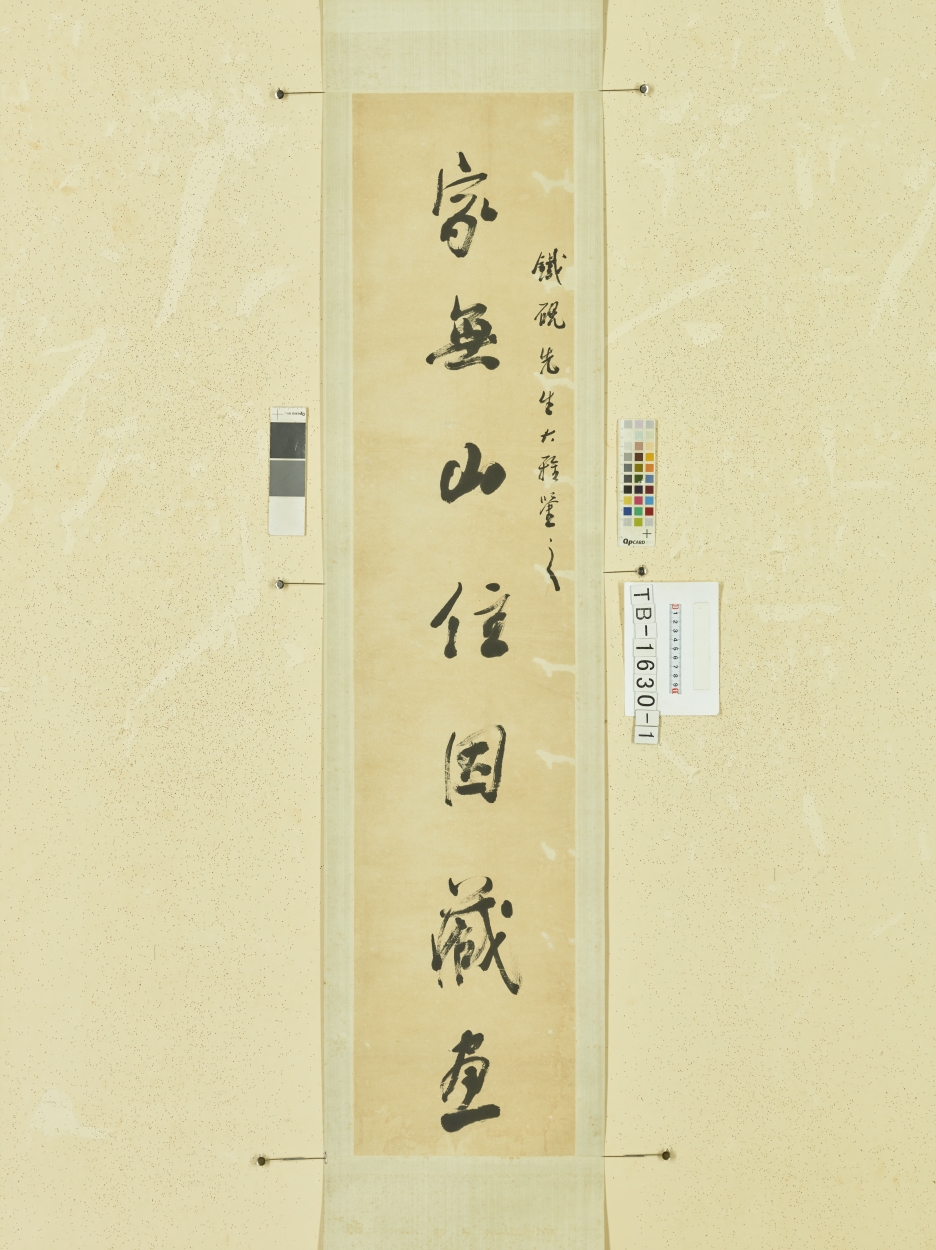 鐵硯先生大雅鑒之
家無山住因藏畫
QPCARD
TB-1630-1
1 2 3 4 5 6 7 8 9